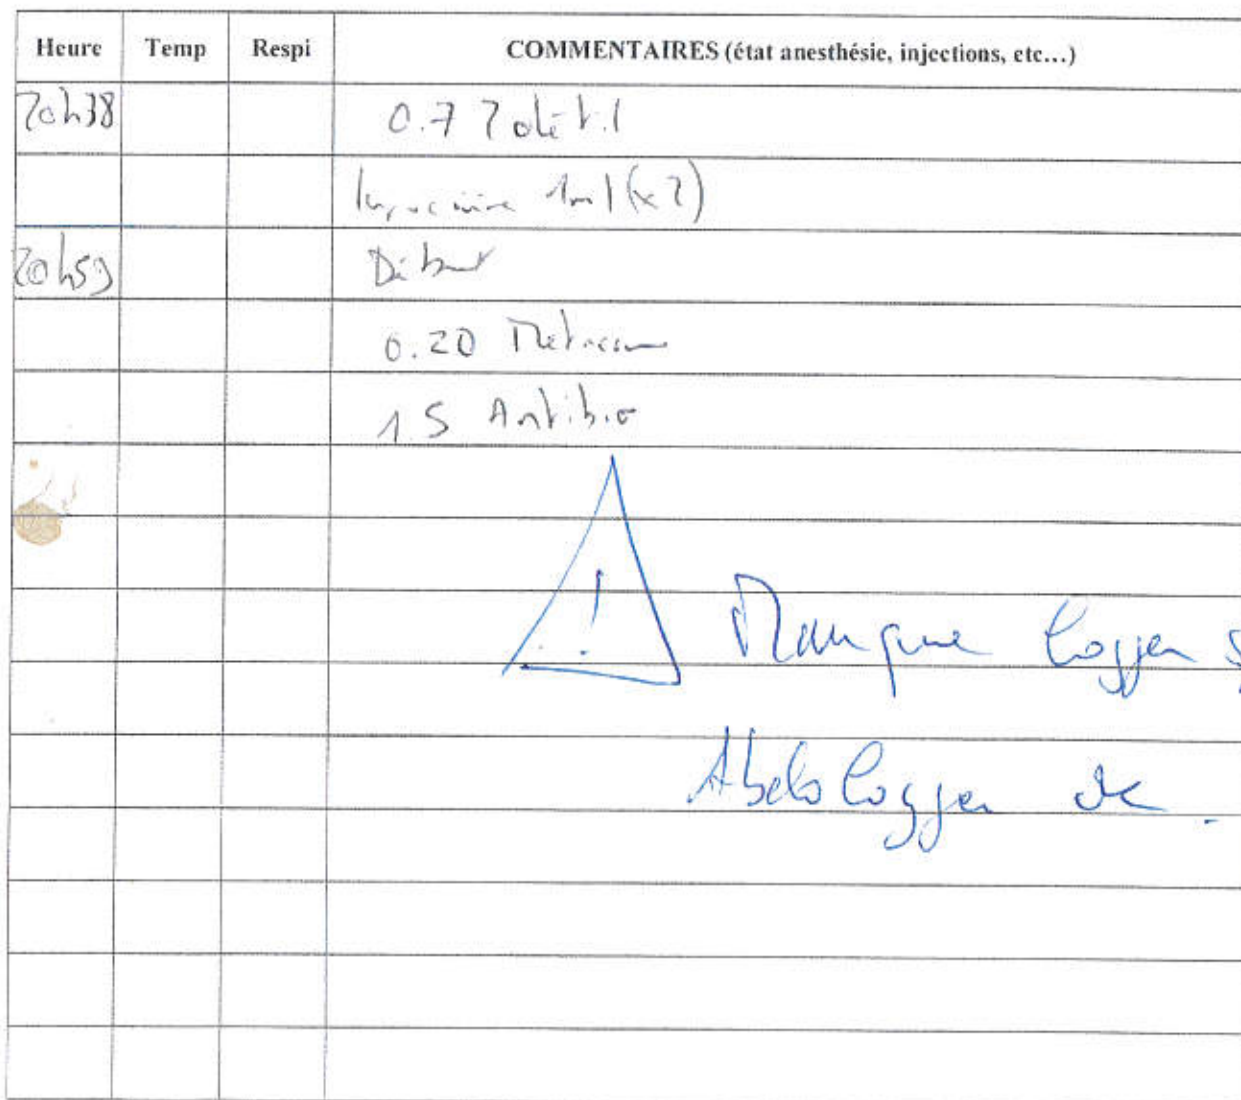 Heure Temp Respi COMMENTAIRES (état anesthésie, injections, etc...)
20h38 0.7 Zolétil
1ml (x2)
20h59 Début
0.20 Metacam
1.5 Antibio
! Manque logger
Abelo logger ok.